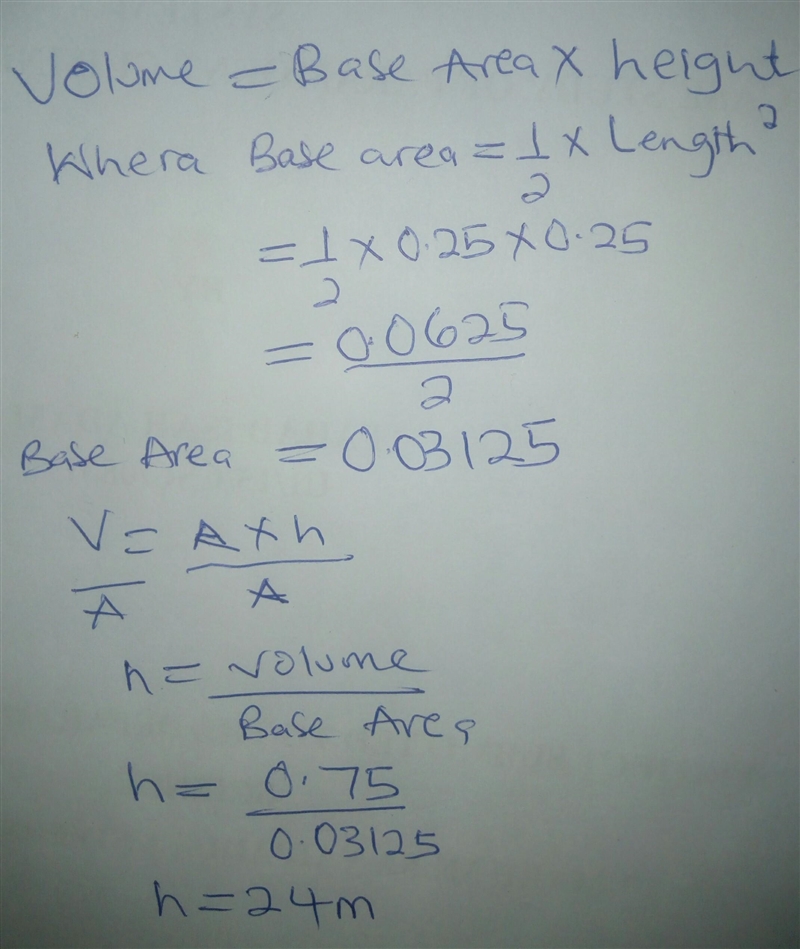 Volume = Base Area × height
Whera Base area = 1/2 × Length²
= 1/2 × 0.25 × 0.25
= 0.0625/2
Base Area = 0.03125
V/A = A × h/A
h = volume/Base Area
h = 0.75/0.03125
h = 24m